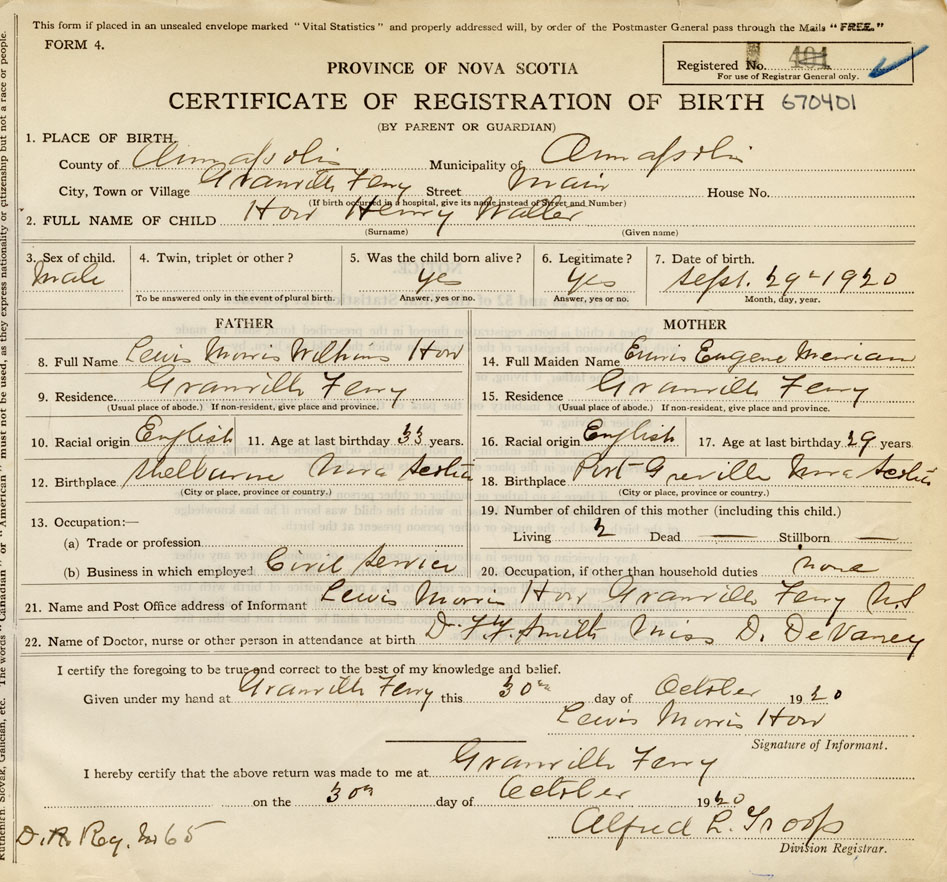 This form if placed in an unsealed envelope marked "Vital Statistics" and properly addressed will, by order of the Postmaster General pass through the Mails "FREE."
FORM 4.
Registered No. 401
For use of Registrar General only.
PROVINCE OF NOVA SCOTIA
CERTIFICATE OF REGISTRATION OF BIRTH 670401
(BY PARENT OR GUARDIAN)
1. PLACE OF BIRTH.
County of Annapolis Municipality of Annapolis
City, Town or Village Granville Ferry Street Main House No.
(If birth occurred in a hospital, give its name instead of Street and Number)
2. FULL NAME OF CHILD How Henry Walter
(Surname) (Given name)
3. Sex of child. 4. Twin, triplet or other? 5. Was the child born alive? 6. Legitimate? 7. Date of birth.
Male yes yes Sept. 29th 1920
To be answered only in the event of plural birth. Answer, yes or no. Answer, yes or no. Month, day, year.
FATHER
8. Full Name Lewis Morris Wilkins How
9. Residence. Granville Ferry
(Usual place of abode.) If non-resident, give place and province.
10. Racial origin English 11. Age at last birthday 33 years.
12. Birthplace Melbourne Nova Scotia
(City or place, province or country.)
13. Occupation:—
(a) Trade or profession
(b) Business in which employed Civil Service
MOTHER
14. Full Maiden Name Eugene Merriam
15. Residence Granville Ferry
(Usual place of abode.) If non-resident, give place and province.
16. Racial origin English 17. Age at last birthday 29 years
18. Birthplace Port Greville Nova Scotia
(City or place, province or country.)
19. Number of children of this mother (including this child.)
Living 2 Dead — Stillborn —
20. Occupation, if other than household duties none
21. Name and Post Office address of Informant Lewis Morris How Granville Ferry N.S
22. Name of Doctor, nurse or other person in attendance at birth Dr. Smith Miss D. DeVaney
I certify the foregoing to be true and correct to the best of my knowledge and belief.
Given under my hand at Granville Ferry this 30th day of October 1920
Lewis Morris How
Signature of Informant.
I hereby certify that the above return was made to me at Granville Ferry
on the 30th day of October 1920
D.R. Reg. No 65
Alfred L. Troop
Division Registrar.